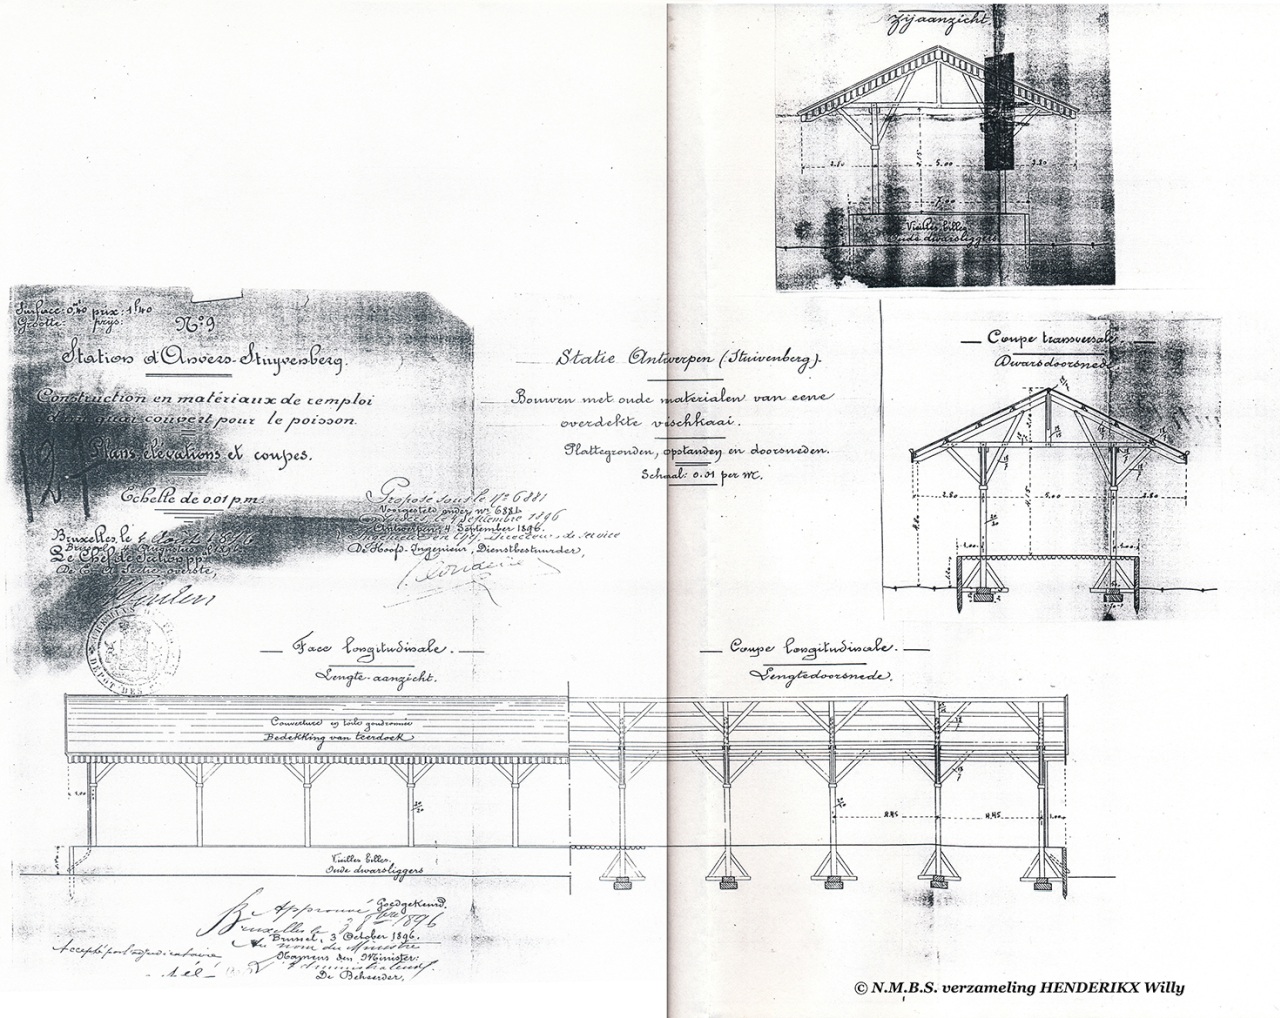 Zijaanzicht.
2.80
4.15
5.00
2.80
7.00
Vieilles billes
Oude dwarsliggers
Surface: 0,40 prix: 1f40
Grootte: prijs:
N:o 9
Station d'Anvers-Stuyvenberg.
Construction en matériaux de remploi
d'un quai couvert pour le poisson.
Plans, élévations et coupes.
Echelle de 0.01 p.m.
Bruxelles, le
Statie Antwerpen (Stuivenberg).
Bouwen met oude materialen van eene
overdekte vischkaai.
Plattegronden, opstanden en doorsneden.
Schaal: 0.01 per M.
Proposé sous le No 6881
Voorgesteld onder No 6881.
Antwerpen 4 September 1896.
Directeur de service
De Hoofd-Ingenieur, Dienstbestuurder,
Coupe transversale
Dwarsdoorsnede
2.80
5.00
2.80
4.15
1.00
1.00
Face longitudinale.
Lengte-aanzicht.
Coupe longitudinale.
Lengtedoorsnede.
Couverture en toile goudronnée
Bedekking van teerdoek
1.00
20/20
20/20
4.45
4.45
1.00
Vieilles billes.
Oude dwarsliggers
Approuvé Goedgekeurd.
Bruxelles le 3 8bre 1896
Brussel, 3 October 1896.
Au nom du Ministre
Namens den Minister:
L'Administrateur.
De Beheerder.
Accepté par l'adjudicataire
© N.M.B.S. verzameling HENDERIKX Willy